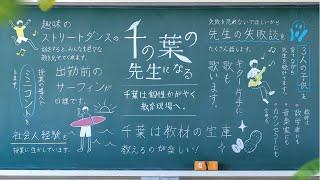 趣味の
ストリートダンスの
千の葉の
先生になる
千葉は個性かがやく
教育現場へ
出勤前の
サーフィンが
日課です。
ミニコントを
します
社会人経験を
授業に生かしています。
失敗を恐れないでほしいから
先生の失敗談を
たくさん話します。
ギター片手に
歌います。
千葉は教材の宝庫
教えるのが楽しい!
3人の子供を
教師は
数学者にも
音楽家にも
カウンセラーにも